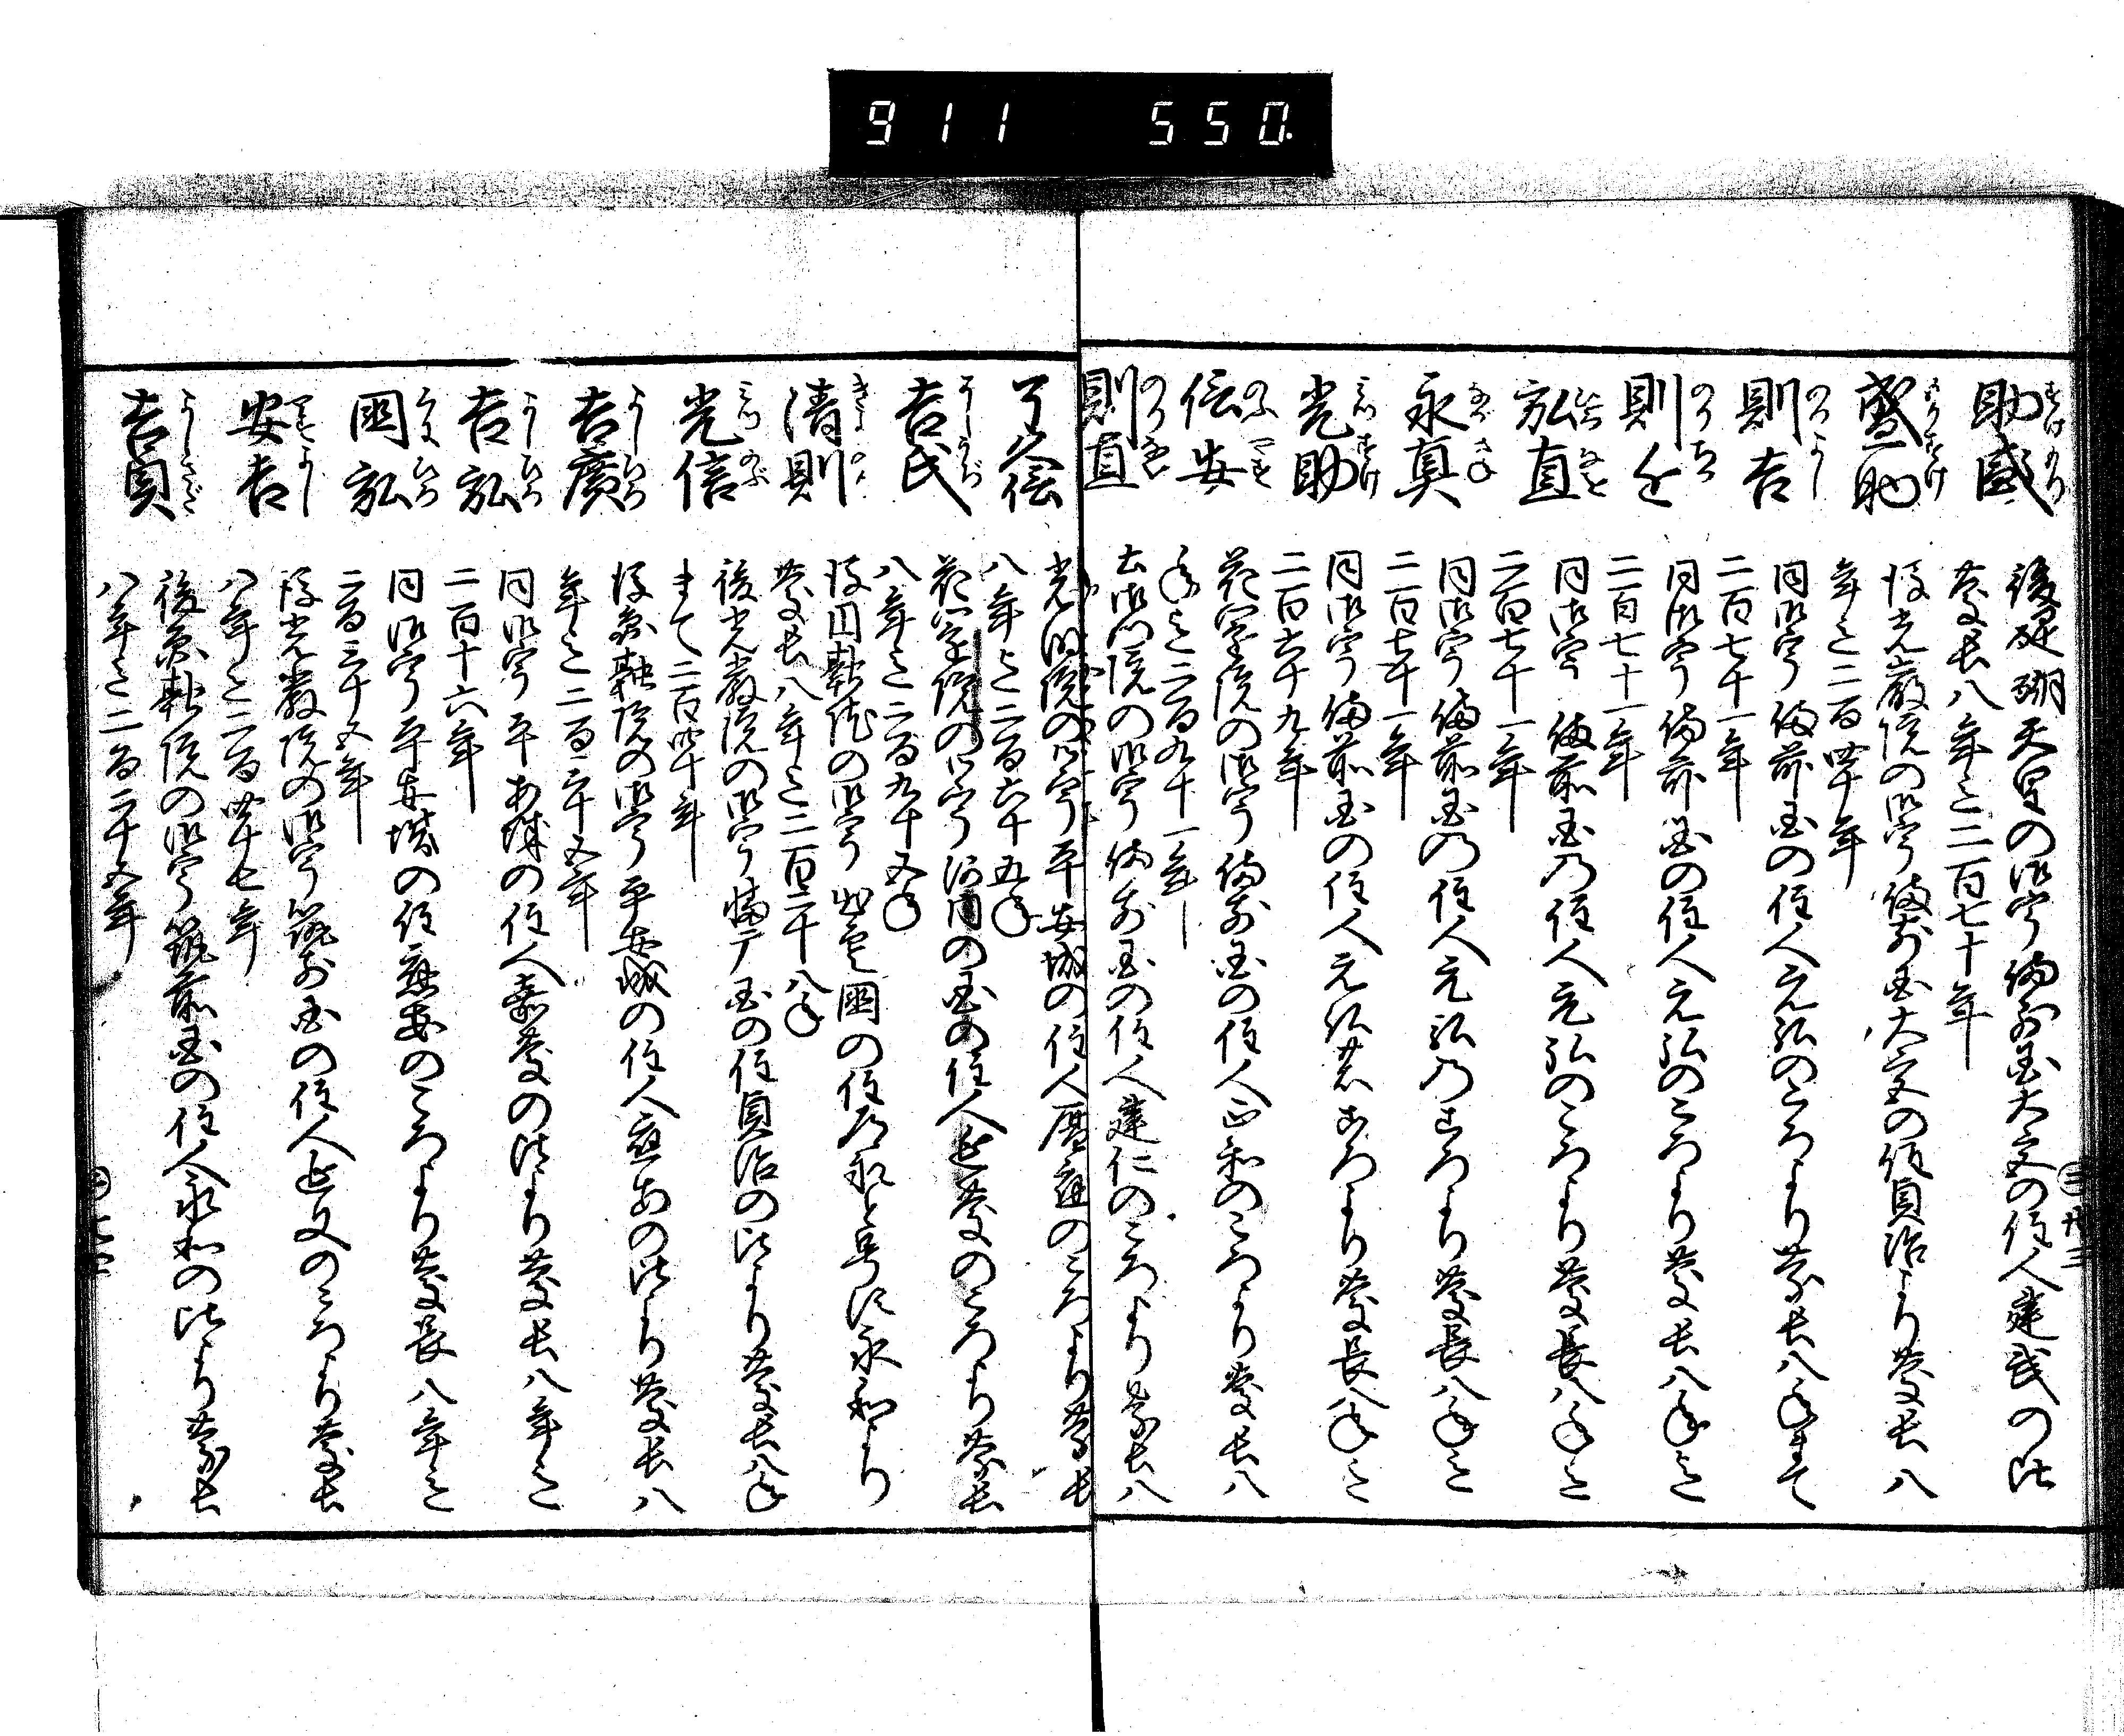 911 550.
助盛 すけもり
後醍醐天皇の御宇備前国大宮の住人建武の比
慶長八年迄二百七十年
盛助 もりすけ
後光厳院の御宇備前国大宮の住貞治より慶長八
年迄二百四十年
則吉 のりよし
同御宇備前国の住人元弘のころより慶長八年まて
二百七十一年
則近 のりちか
同御宇備前国の住人元弘のころより慶長八年迄
二百七十一年
弘直 ひろなを
同御宇備前国乃住人元弘のころより慶長八年迄
二百七十一年
永真 ながさね
同御宇備前国乃住人元弘乃ころより慶長八年迄
二百七十一年
光助 みつすけ
同御宇備前国の住人元弘若ころより慶長八年迄
二百六十九年
信安 のふやす
花園院の御宇備前国の住人正和のころより慶長八
年迄二百九十一年
則直 のりなを
土御門院の御宇備前国の住人建仁のころより慶長八
了戒
光明院の御宇平安城の住人暦応のころより慶長
八年迄二百六十五年
吉氏 よしうぢ
花園院の御宇 の国の住人延慶のころより慶長
八年迄二百九十五年
清則 きよのり
後円融院の御宇出雲国の住 永和より
慶長八年迄二百二十八年
光信 みつのぶ
後光厳院の御宇 国の住貞治の比より慶長八年
まて二百四十年
吉廣 よしひろ
後円融院の御宇平安城の住人応安の比より慶長八
年迄二百三十五年
吉弘 よしひろ
同御宇平安城の住人嘉慶の比より慶長八年迄
二百十六年
國弘 くにひろ
同御宇平安城の住応安のころより慶長八年迄
二百三十五年
安吉 やすよし
後光厳院の御宇筑前国の住人延文のころより慶長
八年迄二百四十七年
吉貞 よしさだ
後円融院の御宇筑前国の住人永和の比より慶長
八年迄二百二十五年